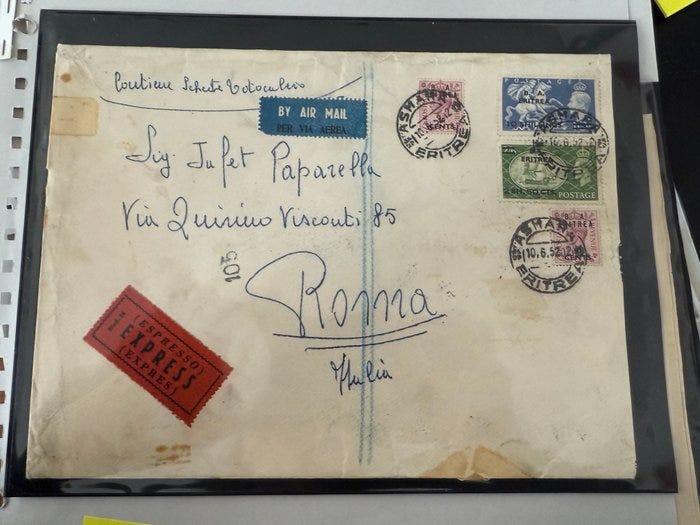 Contiene Schede Totocalcio
BY AIR MAIL
PER VIA AEREA
Sig Jafet Paparella
Via Quirino Visconti 85
Roma
Italia
105
(ESPRESSO)
EXPRESS
(EXPRES)
B. A.
CENTS
ASMARA
ERITREA
POSTAGE
B. A.
ERITREA
10 SHILLINGS
ASMARA
10.6.52.12
ERITREA
ERITREA
2 SH. 50 CTS.
POSTAGE
B. A.
ERITREA
REVENUE
ASMARA
10.6.52.12
ERITREA